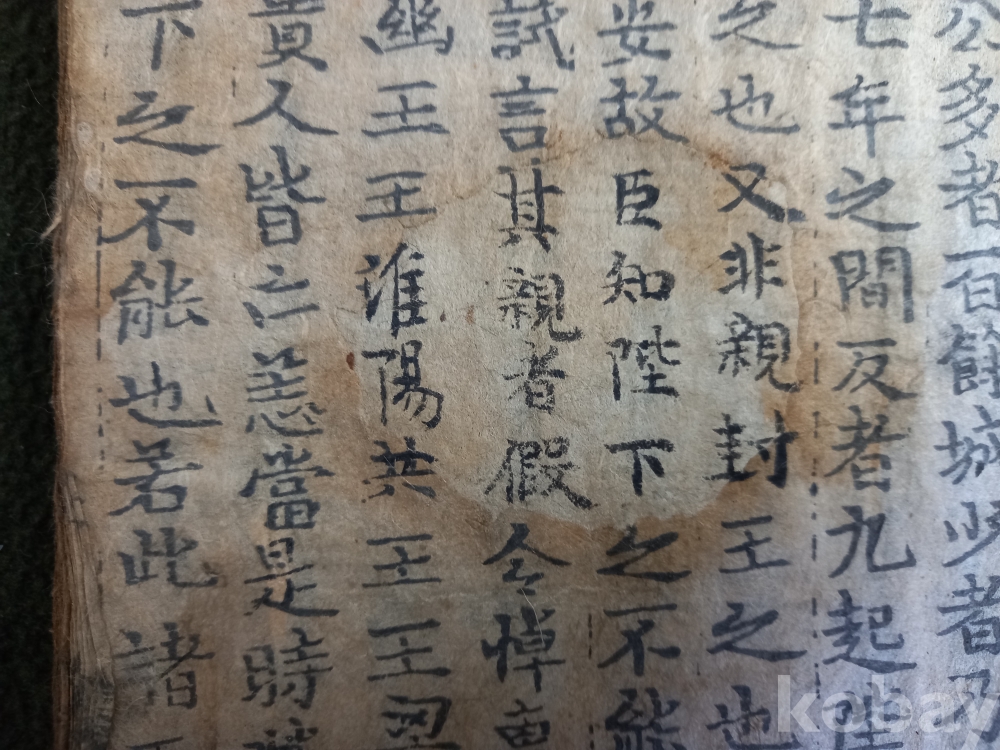 公多者百餘城少者乃
七年之間反者九起陛
之也又非親封王之也
安故臣知陛下之不能
試言其親者假令悼惠
幽王王淮陽共王王梁
貴人皆亡恙當是時
下之不能也若此諸
kobay